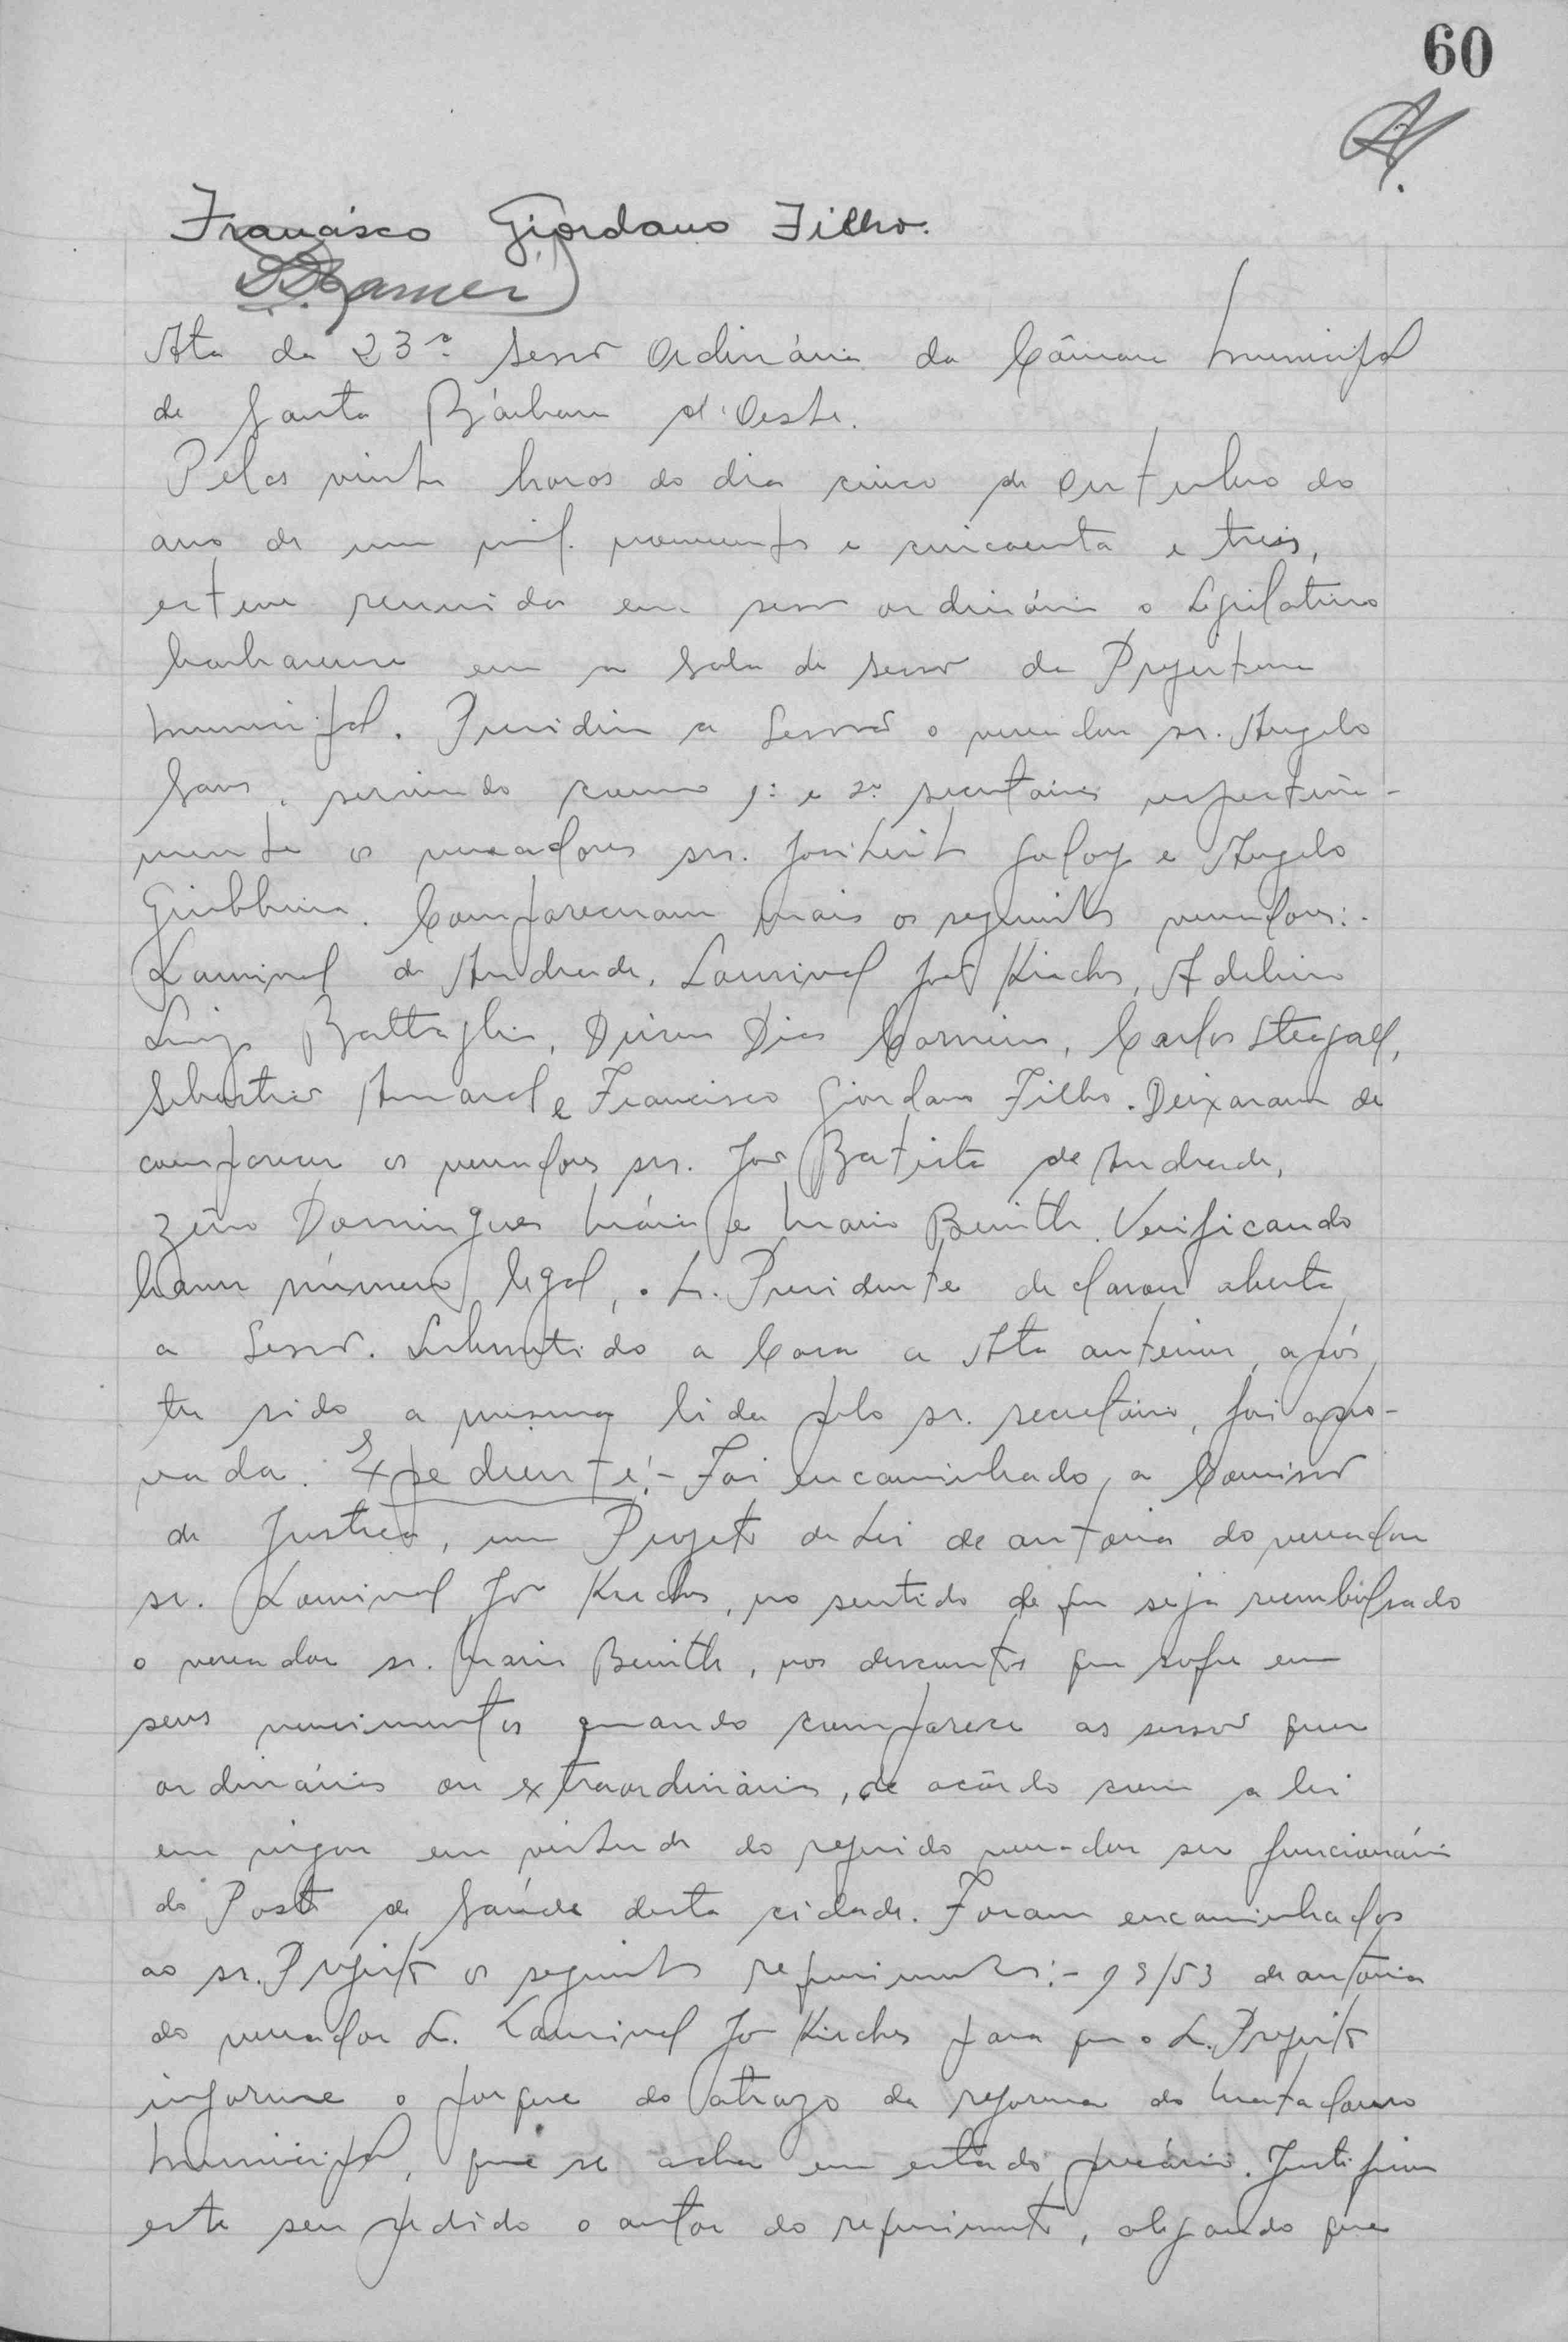 60
Francisco Giordano Filho.
Ata da 23ª sessão Ordinária da Câmara Municipal
de Santa Bárbara d'Oeste.
Pelas vinte horas do dia cinco de outubro do
ano de um mil novecentos e cincoenta e treis,
esteve reunida em sessão ordinária o Legislativo
barbarense em a Sala de sessão da Prefeitura
Municipal. Presidiu a Sessão o vereador sr. Angelo
Sans, servindo como 1º e 2º secretários respectiva-
mente os vereadores srs. e Angelo
Giubbina. Compareceram mais os seguintes vereadores:-
Laurival de Andrade, Laurival José Kirches, Adelino
Luiz Battaglia, Dirceu Dias Carneiro, Carlos Steagall,
Sebastião Amaral e Francisco Giordano Filho. Deixaram de
comparecer os vereadores srs. José Batista de Andrade,
Zeno Domingues Maia e Mario Benith. Verificando
haver número legal, o Sr. Presidente declarou aberta
a Sessão. Submetido a Casa a Ata anterior, após
ter sido a mesma lida pelo sr. secretário, foi apro-
vada. Expediente:- Foi encaminhado a Comissão
de Justiça, um Projeto de Lei de autoria do vereador
sr. Laurival José Kirches, no sentido de que seja reembolsado
o vereador sr. Mario Benith, nos descontos que sofre em
seus vencimentos quando comparece as sessões quer
ordinárias ou extraordinárias, de acôrdo com a lei
em vigor em virtude do referido vereador ser funcionário
do Posto de Saúde desta cidade. Foram encaminhados
ao sr. Prefeito os seguintes requerimentos:- 93/53 de autoria
do vereador Sr. Laurival José Kirches para que o Sr. Prefeito
informe o porque do atrazo da reforma do Matadouro
Municipal, que se acha em estado precário. Justificou
este seu pedido o autor do requerimento, alegando que